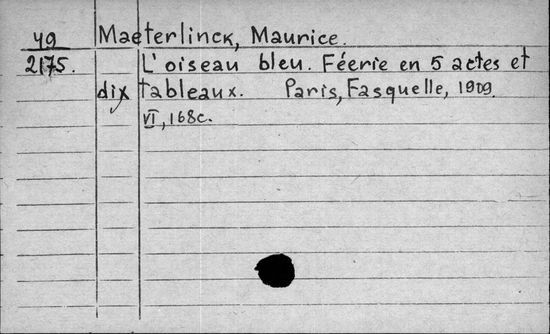 49 Maeterlinck, Maurice.
2175. L'oiseau bleu. Féerie en 5 actes et
dix tableaux. Paris, Fasquelle, 1909.
VI, 168c.